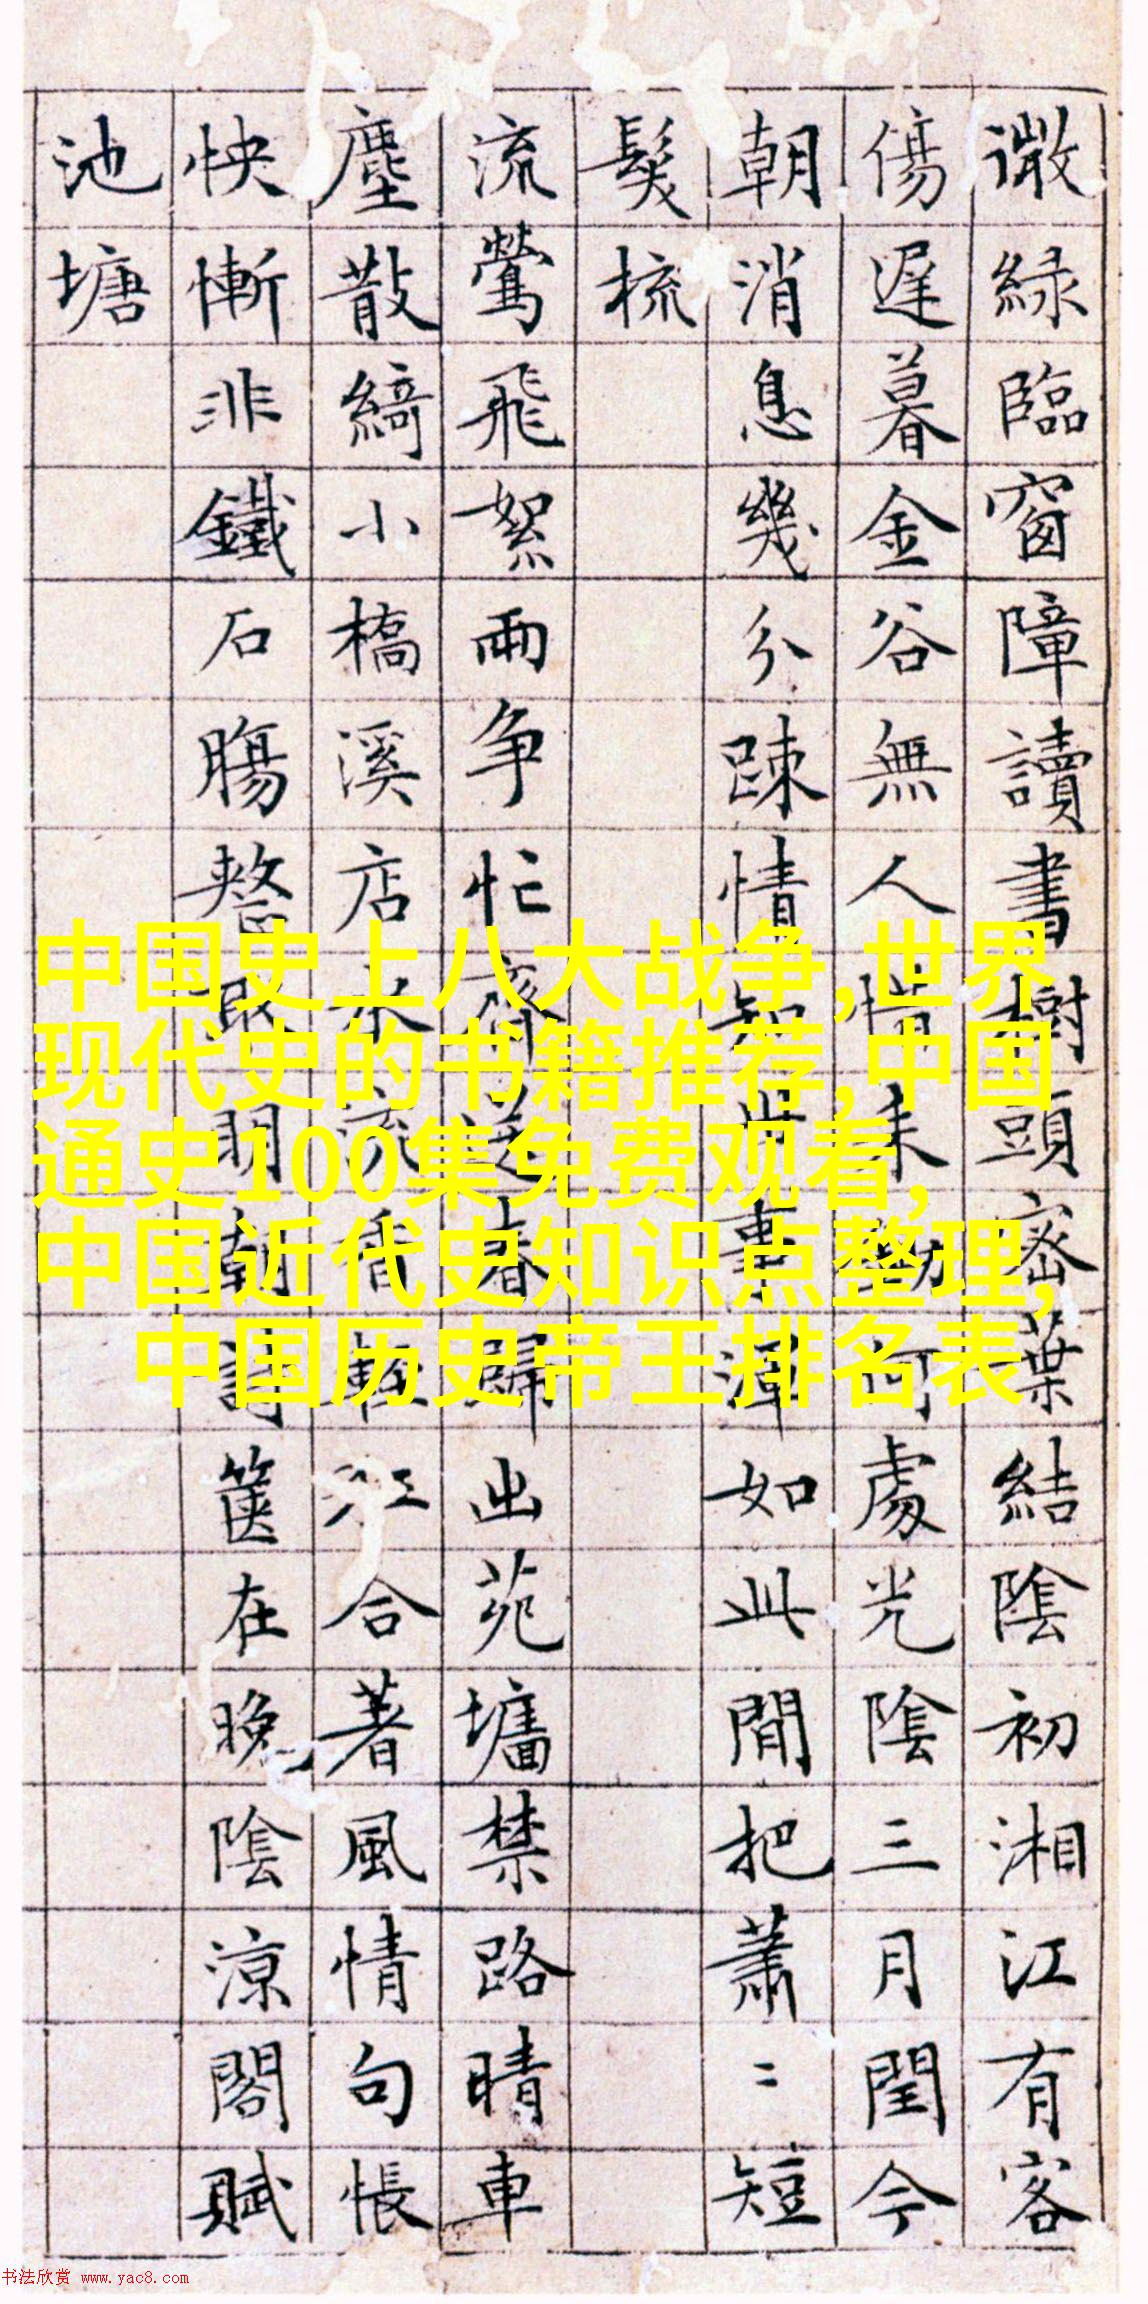 微綠臨窗障讀書樹頭密葉結陰初湘江有客
傷遲暮金谷無人惜何處光陰三月閏今
朝消息幾分踈情知世事渾如此閒把蕭〻短
鬢梳
流鶯飛絮兩争忙齊送春歸出苑墻禁路晴車
塵散綺小橋溪店水流香輕江合著風情句悵
怏慚非鐵石腸取明朝詩篋在晚陰涼閣賦
池塘
中国史上八大战争,世界
现代史的书籍推荐,中国
通史100集免费观看,
中国近代史知识点整理,
中国历史帝王排名表
书法欣赏 www.yac8.com